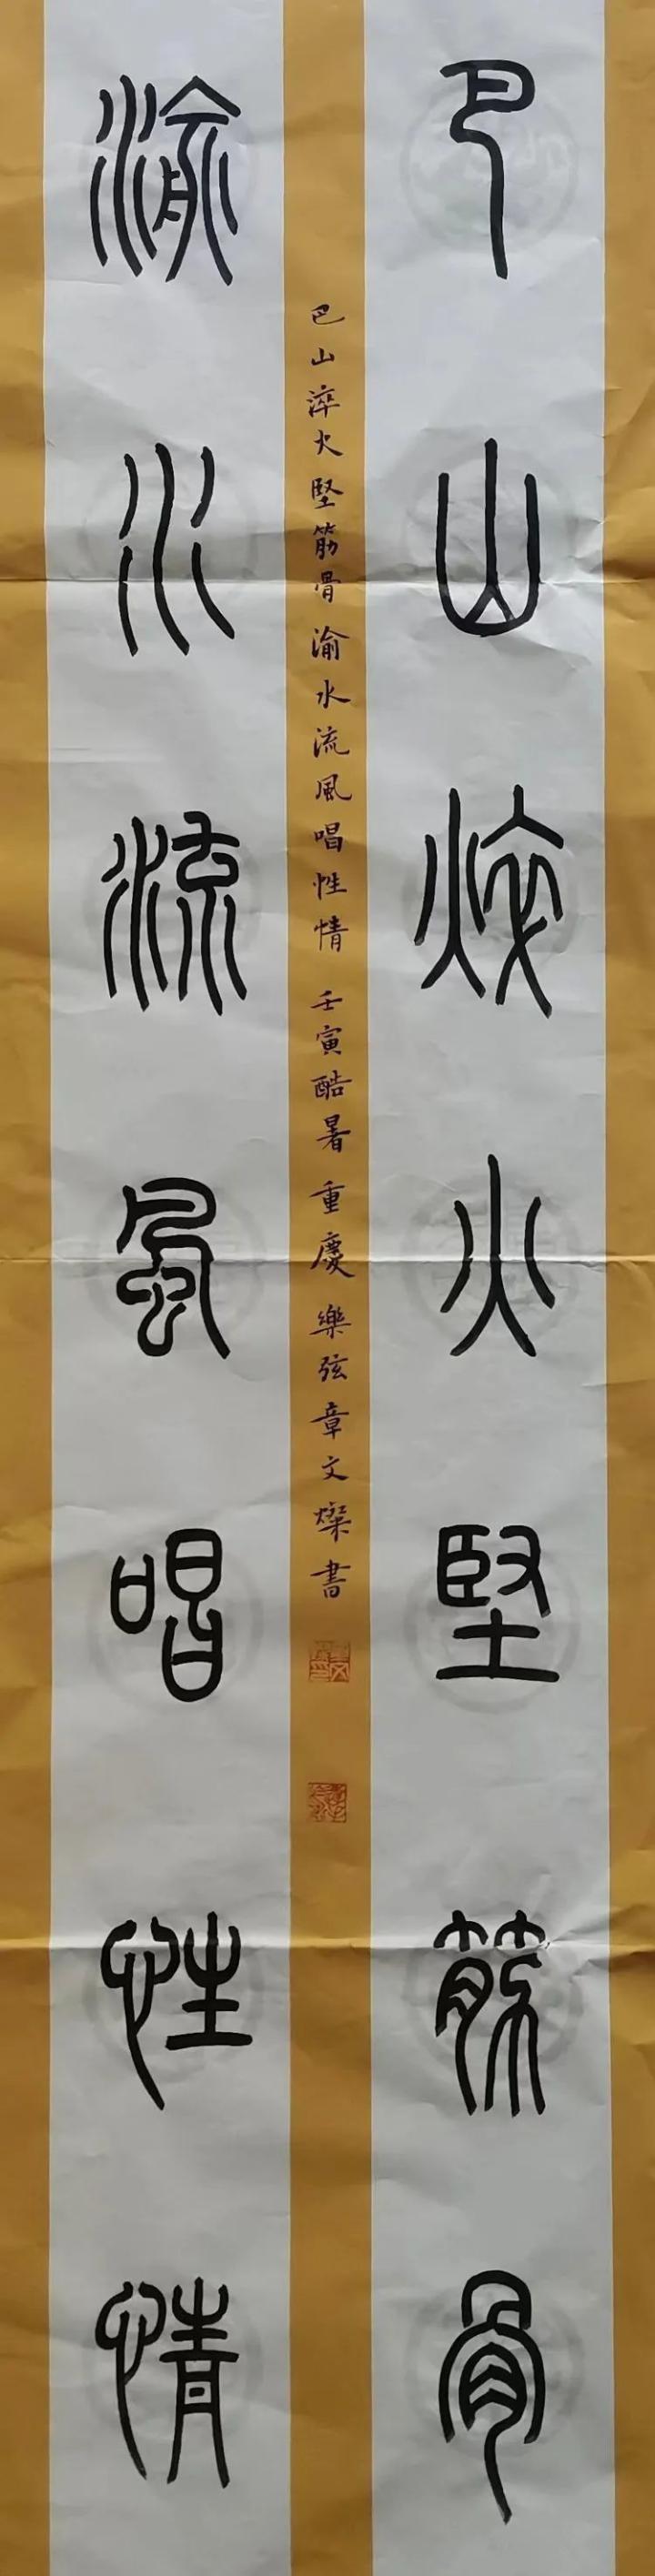 巴山焠火堅筋骨
渝水流風唱性情
巴山淬火堅筋骨渝水流風唱性情 壬寅酷暑重慶樂弦章文燦書